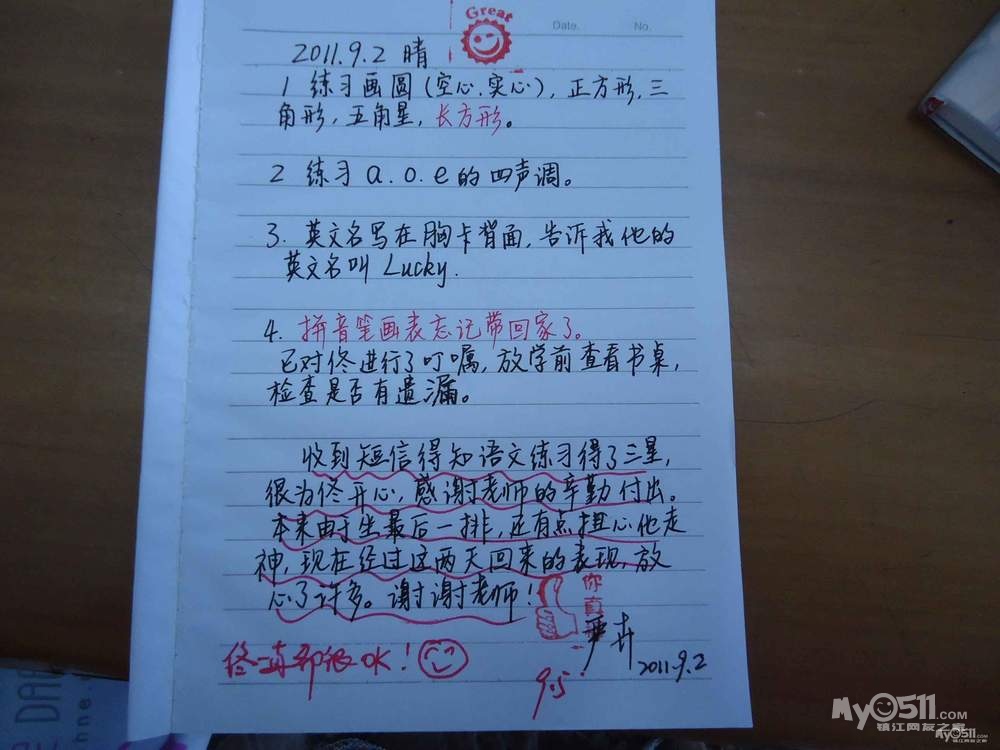 Great
Date.
No.
2011.9.2 晴
1 练习画圆(空心.实心), 正方形, 三
角形, 五角星, 长方形。
2 练习 a.o.e的四声调。
3. 英文名写在胸卡背面, 告诉我他的
英文名叫 Lucky.
4. 拼音笔画表忘记带回家了。
已对佟进行了叮嘱, 放学前查看书桌,
检查是否有遗漏。
收到短信得知语文练习得了三星,
很为佟开心, 感谢老师的辛勤付出。
本来由于坐最后一排, 还有点担心他走
神, 现在经过这两天回来的表现, 放
心了许多。谢谢老师!
你真
严卉
2011.9.2
佟一直都很OK!
9.5
DAB
nne.
My0511.com
镇江网友之家
My0511.com
镇江网友之家